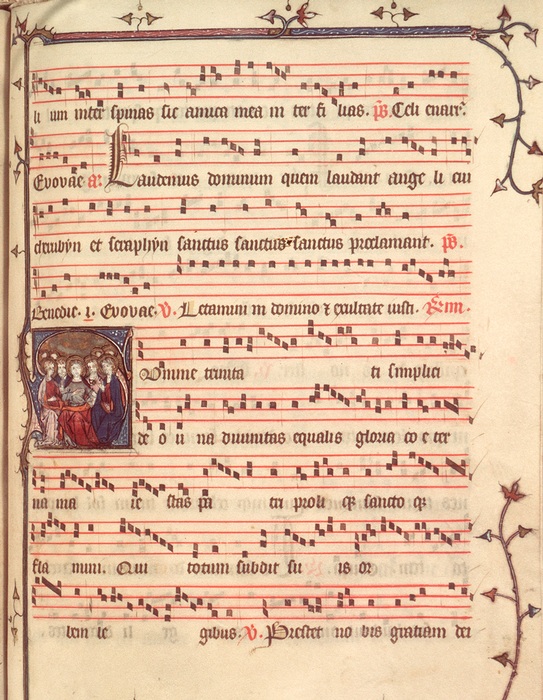 li um inter spinas sic amica mea in ter fi lias. ps. Celi enarr̄.
Evovae a. Laudemus dominum quem laudant ange li cui
cherubyn et seraphyn sanctus sanctus sanctus proclamant. ps.
Benedic. i. Evovae. V. Letamini in domino ⁊ exultate iusti.
Omine trinita ti simplici
de o u na divinitas equalis gloria co e ter
na ma ie stas pa tri proli qꝫ sancto qꝫ
fla mini. Qui totum subdit su is or
bem le gibus. V. Prestet no bis gratiam dei